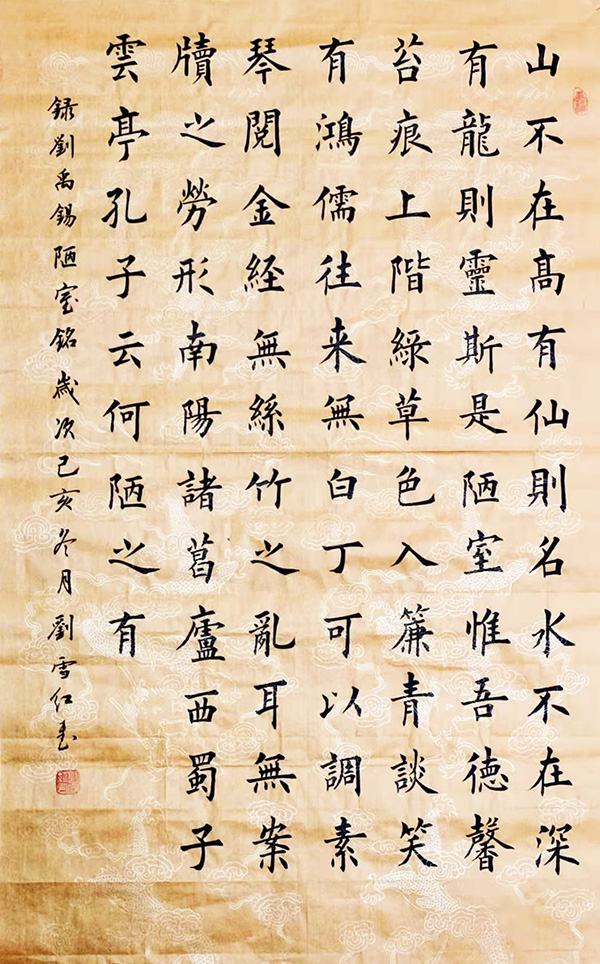 山不在高有仙則名水不在深
有龍則靈斯是陋室惟吾德馨
苔痕上階綠草色入簾青談笑
有鴻儒往来無白丁可以調素
琴閱金経無絲竹之亂耳無案
牘之勞形南陽諸葛廬西蜀子
雲亭孔子云何陋之有
録劉禹錫陋室銘歲次己亥冬月劉雪红书